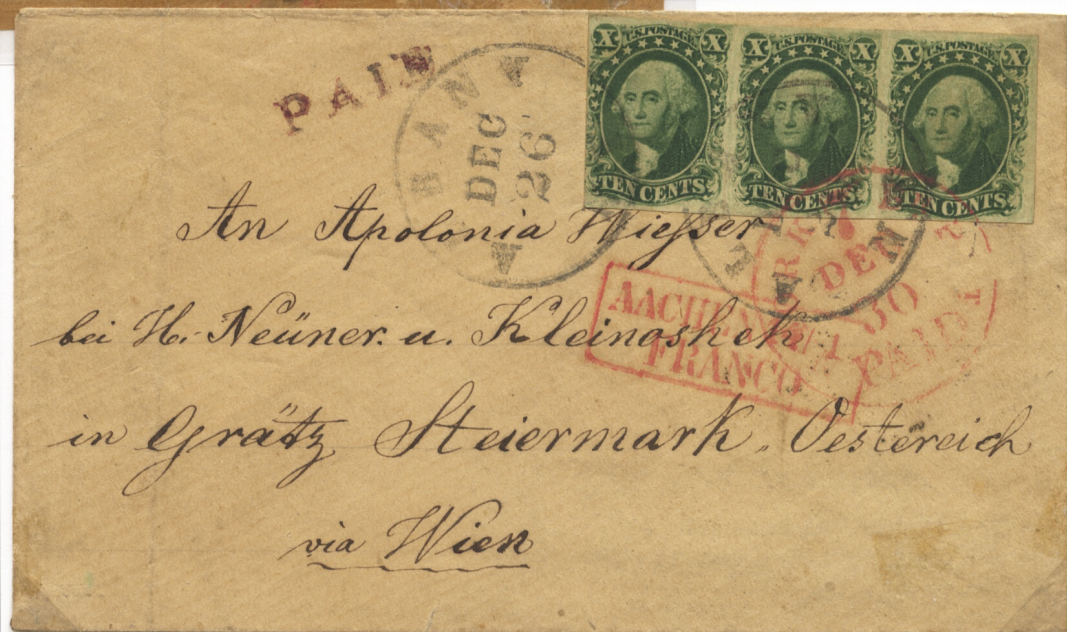 PAID
ALBANY
DEC
26
X U.S. POSTAGE X
TEN CENTS.
X U.S. POSTAGE X
TEN CENTS.
X U.S. POSTAGE X
TEN CENTS.
DEC
30
PAID
AACHEN
FRANCO
An Apolonia Wiesser
bei H. Neüner. u. Kleinoshek
in Grätz Steiermark „ Oestereich
via Wien